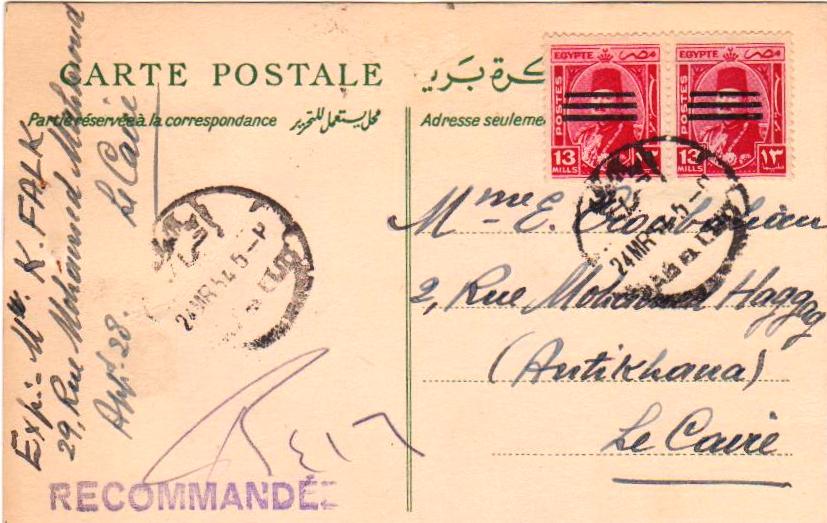 CARTE POSTALE
Partie réservée à la correspondance محل يستعمل للتحرير
Adresse seuleme
EGYPTE مصر
POSTES
13 MILLS ١٣
EGYPTE مصر
POSTES
13 MILLS ١٣
24 MR 54. 5-
24 MR 54. 5-
Mme E.
2, Rue Mohamed Haggag
(Antikhana)
Le Caire
Exp:- K. FALK
29, Rue Mohamed
Appt. 28. Le Caire
٤١٦
RECOMMANDÉ